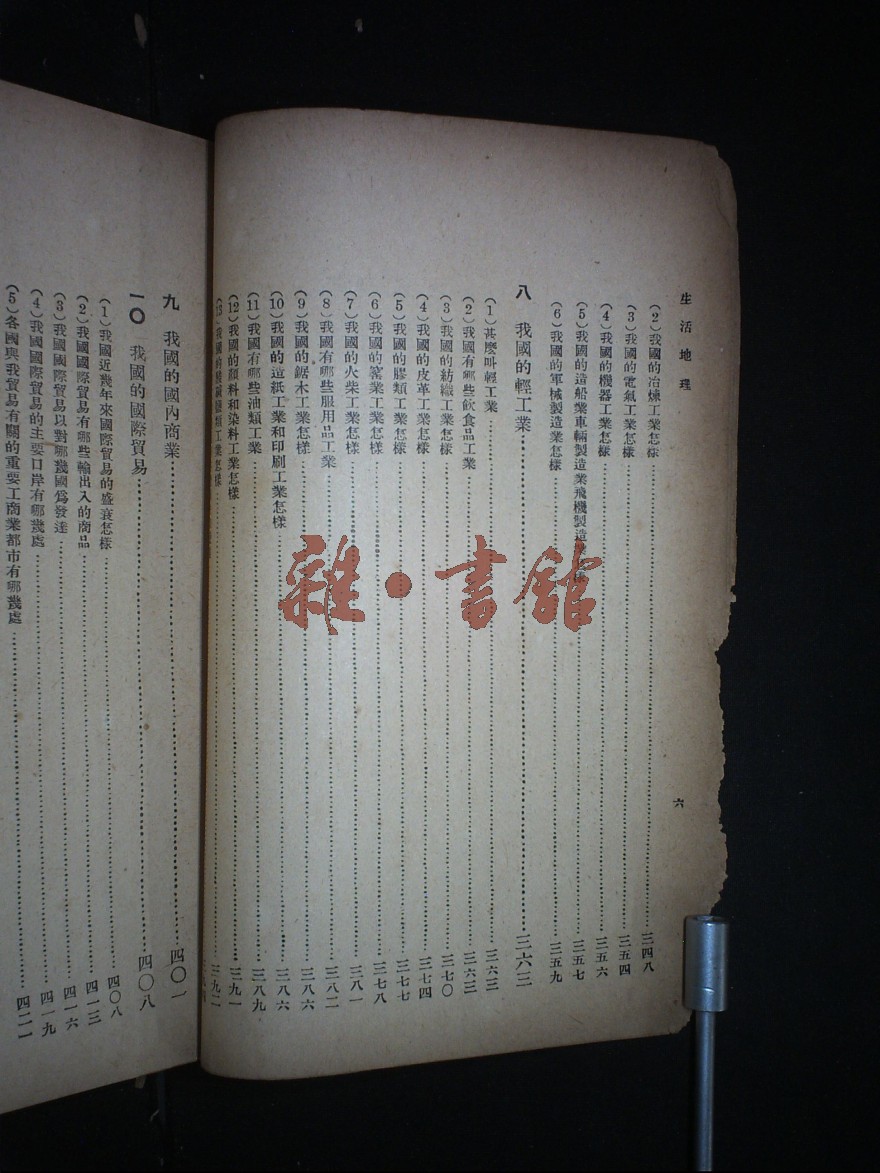 生活地理 六
(2)我國的冶煉工業怎樣……三四八
(3)我國的電氣工業怎樣……三五四
(4)我國的機器工業怎樣……三五六
(5)我國的造船業車輛製造業飛機製造業怎樣……三五七
(6)我國的軍械製造業怎樣……三五九
八 我國的輕工業……三六三
(1)甚麼叫輕工業……三六三
(2)我國有哪些飲食品工業……三六三
(3)我國的紡織工業怎樣……三七〇
(4)我國的皮革工業怎樣……三七四
(5)我國的膠類工業怎樣……三七七
(6)我國的窰業工業怎樣……三七八
(7)我國的火柴工業怎樣……三八一
(8)我國有哪些服用品工業……三八二
(9)我國的鋸木工業怎樣……三八六
(10)我國的造紙工業和印刷工業怎樣……三八六
(11)我國有哪些油類工業……三八九
(12)我國的顏料和染料工業怎樣……三九一
(13)我國的類工業怎樣……三九二
九 我國的國內商業……四〇一
一〇 我國的國際貿易……四〇八
(1)我國近幾年來國際貿易的盛衰怎樣……四〇八
(2)我國國際貿易有哪些輸出入的商品……四一三
(3)我國國際貿易以對哪幾國爲發達……四一六
(4)我國國際貿易的主要口岸有哪幾處……四一九
(5)各國與我貿易有關的重要工商業都市有哪幾處……四二一
雜·書館